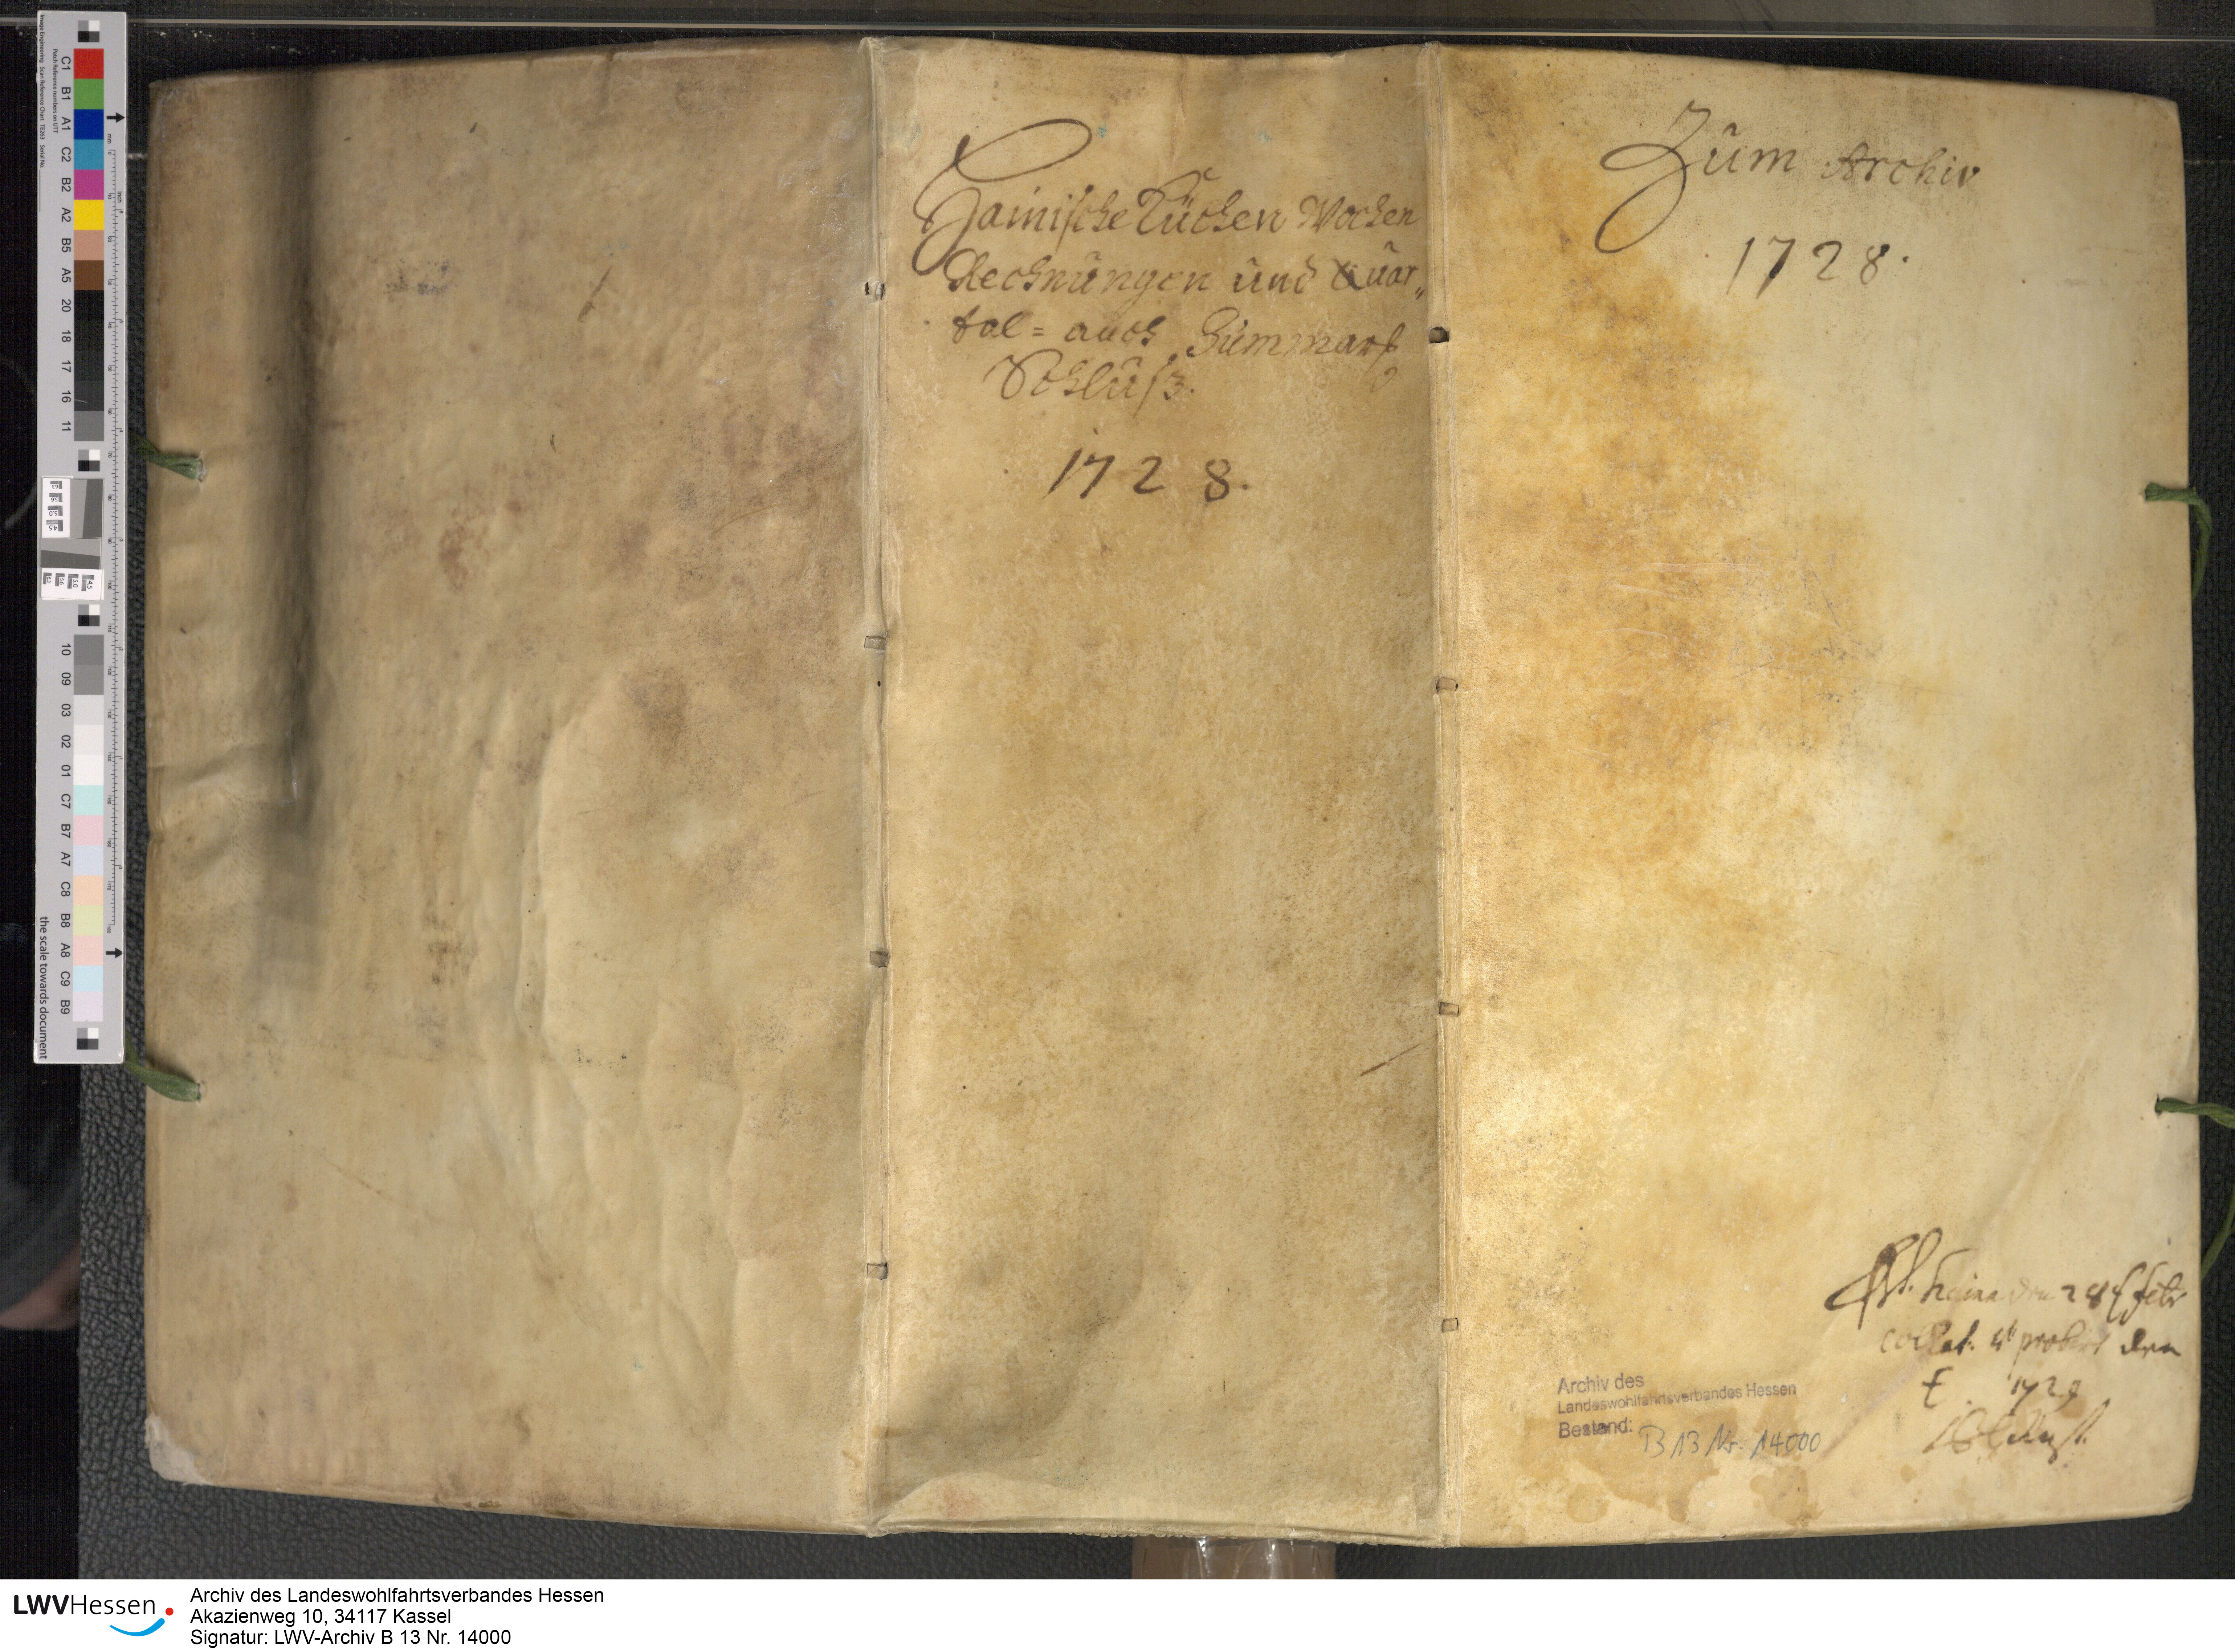 Hainische Küchen Wochen
Rechnungen und Quar„
tal= auch Summari
Schluß.
1728.
Zum Archiv
1728.
Haina den 28t febr
collat. et probirt den
1729
Archiv des
Landeswohlfahrtsverbandes Hessen
Bestand: B 13 Nr. 14000
LWVHessen
Archiv des Landeswohlfahrtsverbandes Hessen
Akazienweg 10, 34117 Kassel
Signatur: LWV-Archiv B 13 Nr. 14000
C1 B1 A1 C2 B2 A2 B5 A5 20 18 17 16 11
10 09 03 02 01 C7 B7 A7 C8 B8 A8 C9 B9
the scale towards document